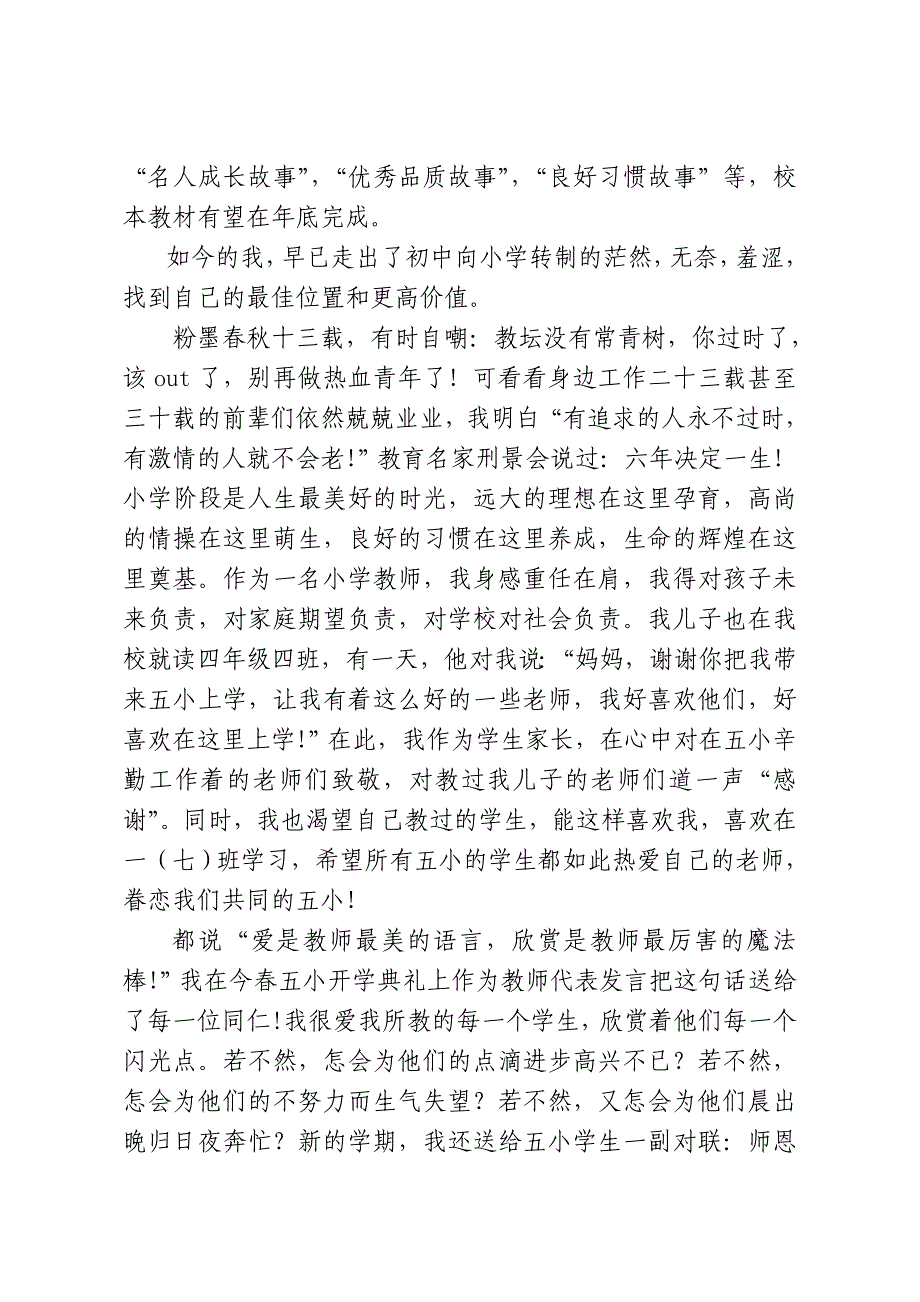 “名人成长故事”，“优秀品质故事”，“良好习惯故事” 等，校
本教材有望在年底完成。
如今的我，早已走出了初中向小学转制的茫然，无奈，羞涩，
找到自己的最佳位置和更高价值。
粉墨春秋十三载，有时自嘲：教坛没有常青树，你过时了，
该 out 了，别再做热血青年了！可看看身边工作二十三载甚至
三十载的前辈们依然兢兢业业，我明白“有追求的人永不过时，
有激情的人就不会老！”教育名家刑景会说过：六年决定一生！
小学阶段是人生最美好的时光，远大的理想在这里孕育，高尚
的情操在这里萌生，良好的习惯在这里养成，生命的辉煌在这
里奠基。作为一名小学教师，我身感重任在肩，我得对孩子未
来负责，对家庭期望负责，对学校对社会负责。我儿子也在我
校就读四年级四班，有一天，他对我说：“妈妈，谢谢你把我带
来五小上学，让我有着这么好的一些老师，我好喜欢他们，好
喜欢在这里上学！”在此，我作为学生家长，在心中对在五小辛
勤工作着的老师们致敬，对教过我儿子的老师们道一声“感
谢”。同时，我也渴望自己教过的学生，能这样喜欢我，喜欢在
一（七）班学习，希望所有五小的学生都如此热爱自己的老师，
眷恋我们共同的五小！
都说“爱是教师最美的语言，欣赏是教师最厉害的魔法
棒！”我在今春五小开学典礼上作为教师代表发言把这句话送给
了每一位同仁！我很爱我所教的每一个学生，欣赏着他们每一个
闪光点。若不然，怎会为他们的点滴进步高兴不已？若不然，
怎会为他们的不努力而生气失望？若不然，又怎会为他们晨出
晚归日夜奔忙？新的学期，我还送给五小学生一副对联：师恩